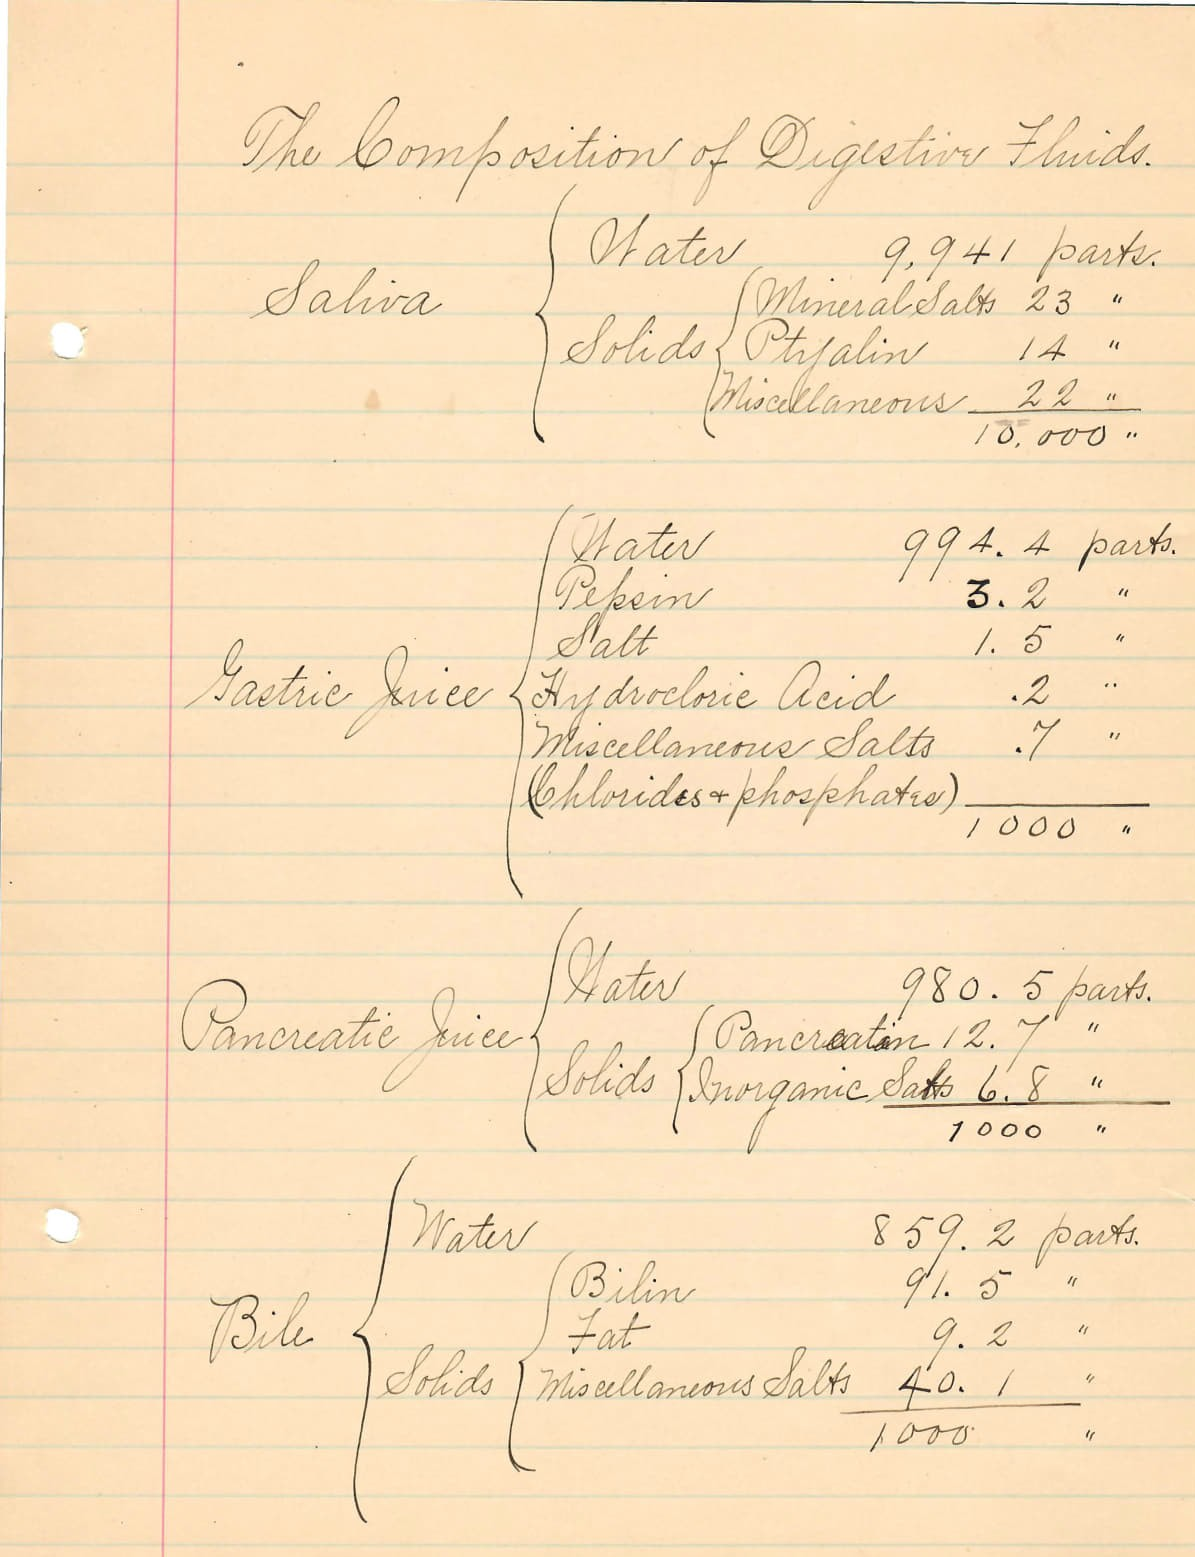 The Composition of Digestive Fluids.
Water 9,941 parts.
Saliva Mineral Salts 23 "
Solids Ptyalin 14 "
Miscellaneous 22 "
10,000 "
Water 994.4 parts.
Pepsin 3.2 "
Salt 1.5 "
Gastric Juice Hydrocloric Acid .2 "
Miscellaneous Salts .7 "
(Chlorides + phosphates)
1000 "
Water 980.5 parts.
Pancreatic Juice Pancreatin 12.7 "
Solids Inorganic Salts 6.8 "
1000 "
Water 859.2 parts.
Bilin 91.5 "
Bile Fat 9.2 "
Solids Miscellaneous Salts 40.1 "
1000 "